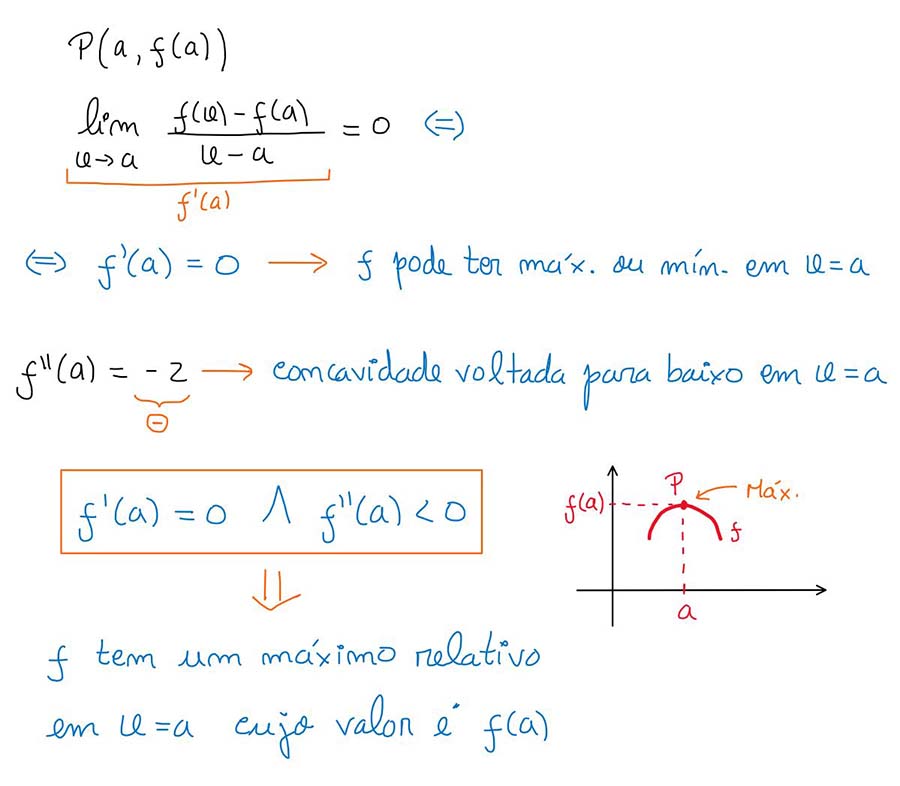 P(a, f(a))
lim x→a (f(x) - f(a))/(x - a) = 0 ⇔
f'(a)
⇔ f'(a) = 0 → f pode ter máx. ou mín. em x = a
f''(a) = -2 → concavidade voltada para baixo em x = a
⊖
f'(a) = 0 ∧ f''(a) < 0
P
Máx.
f(a)
f
a
⇓
f tem um máximo relativo
em x = a cujo valor é f(a)